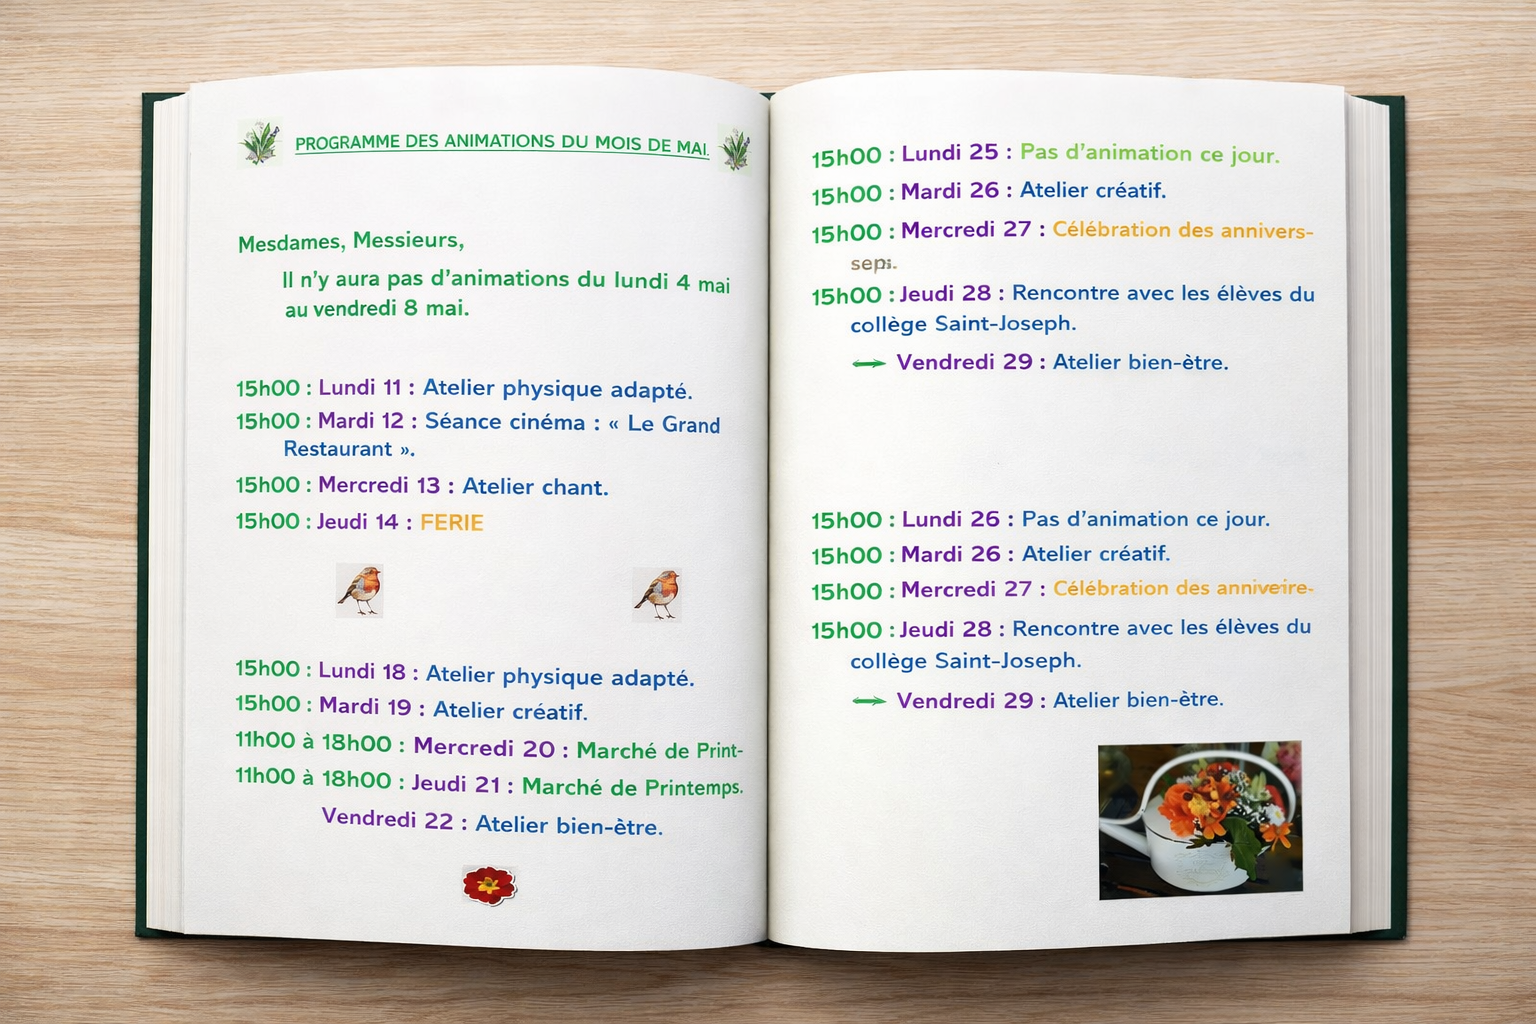 PROGRAMME DES ANIMATIONS DU MOIS DE MAI.
Mesdames, Messieurs,
Il n'y aura pas d'animations du lundi 4 mai
au vendredi 8 mai.
15h00 : Lundi 11 : Atelier physique adapté.
15h00 : Mardi 12 : Séance cinéma : « Le Grand
Restaurant ».
15h00 : Mercredi 13 : Atelier chant.
15h00 : Jeudi 14 : FERIE
15h00 : Lundi 18 : Atelier physique adapté.
15h00 : Mardi 19 : Atelier créatif.
11h00 à 18h00 : Mercredi 20 : Marché de Print-
11h00 à 18h00 : Jeudi 21 : Marché de Printemps.
Vendredi 22 : Atelier bien-ètre.
15h00 : Lundi 25 : Pas d'animation ce jour.
15h00 : Mardi 26 : Atelier créatif.
15h00 : Mercredi 27 : Célébration des annivers-
15h00 : Jeudi 28 : Rencontre avec les élèves du
collège Saint-Joseph.
Vendredi 29 : Atelier bien-ètre.
15h00 : Lundi 26 : Pas d'animation ce jour.
15h00 : Mardi 26 : Atelier créatif.
15h00 : Mercredi 27 : Célébration des
15h00 : Jeudi 28 : Rencontre avec les élèves du
collège Saint-Joseph.
Vendredi 29 : Atelier bien-ètre.